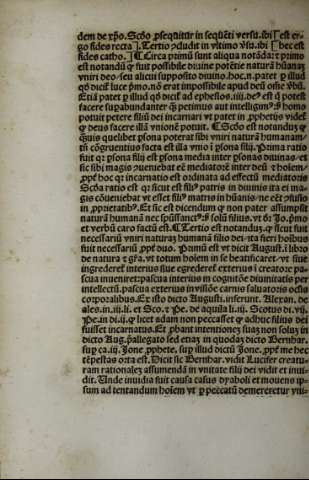 dem de xp̄o. Scd̄o ꝓsequit̉ in sequēti versu. ibi ⁅ est er-
go fides recta ⁆. Tertio ↄcludit in vltimo v̉su. ibi ⁅ hec est
fides catho. ⁆ ¶ Circa primū sunt aliqua notāda: ⁊ primo
est notandū ꝙ fuit possibile diuine potētie naturā hūanaȝ
vniri deo / seu alicui supposito diuino. hoc. n. patet ꝑ illud
qd̄ dicit̉ luce p̄mo. nō erat impossibile apud deū om̄e v̉bū.
Etiā patet ꝑ illud qd̄ dicit ad ephesios. iij. deꝰ est q̄ potest
facere supabundanter ꝙ̄ petimus aut intelligimꝰ. s̄ homo
potuit petere filiū dei incarnari vt patet in ꝓphetis. videt̉
ꝙ deus facere illā vnionē potuit. ¶ Scd̄o est notandus ꝙ
quis quelibet ꝑsona poterat sibi vniri naturā humanam.
tn̄ cōgruentius facta est illa vnio ī ꝑsona filij. Prima ratio
fuit qr ꝑsona filij est ꝑsona media inter ꝑsonas diuinas. et
sic sibi magis ↄueniebat eē mediatorē inter deū ⁊ hoīem.
ꝓpt̉ hoc qr incarnatio est ordinata ad effectū mediatoris
Scd̄a ratio est qr sicut est filiꝰ patris in diuinis ita ei ma-
gis cōueniebat vt esset filiꝰ matris in hūanis. ne eēt ↄfusio
in ꝓprietatibꝰ. Et sic est dicendum ꝙ non pater assumpsit
naturā humanā nec sp̄ūssanctꝰ. s̄ solū filius. vt dr̄ Jo. p̄mo
et verbū caro factū est. ¶ Tertio est notanduȝ. ꝙ sicut fuit
necessariū vniri naturaȝ humanā filio dei. ita fieri hoībus
fuit necessariū ꝓpt̉ duo. Primū est vt dicit August. ī libro
de natura ⁊ gr̄a. vt totum hoīem in se beatificaret. vt siue
ingrederet̉ interius siue egrederet̉ exterius ī creatore pa-
scua inueniret: pascua interius in cognitōe diuinitatis per
intellectū. pascua exterius in visiōe carnis saluatoris oclis
corporalibus. Ex isto dicto Augusti. inferunt. Alexan. de
ales. in. iij. li. et Sco. ⁊ Pe. de aquila li. iij. Scotus di. vij.
Pe. in di. ij. ꝙ licet adam non peccasset ꝙ adhuc filius dei
fuisset incarnatus. Et ꝓbant intentionez suaȝ non soluȝ in
dicto Aug. p̄allegato sed etiaȝ in quodaȝ dicto Bernhar.
sup ca. iij. Jone ꝓphete. sup illud dictū Jone. ꝓpt̉ me hec
tēpestas orta est. Dicit sic Bernhar. vidit Lucifer creatu-
ram rationaleȝ assumendā in vnitate filij dei vidit et inui-
dit. Unde inuidia fuit causa casus dyaboli et mouens ip-
sum ad tentandum hoīem vt ꝑ peccatū demereretur vni-